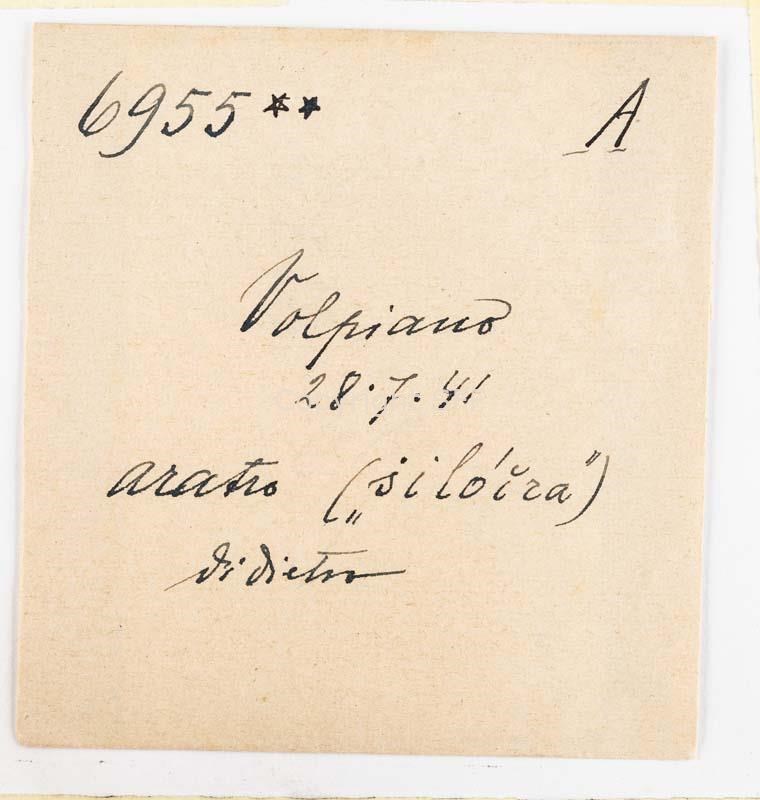 6955** A
Volpiano
28.7.41
aratro („šilóčra")
di dietro